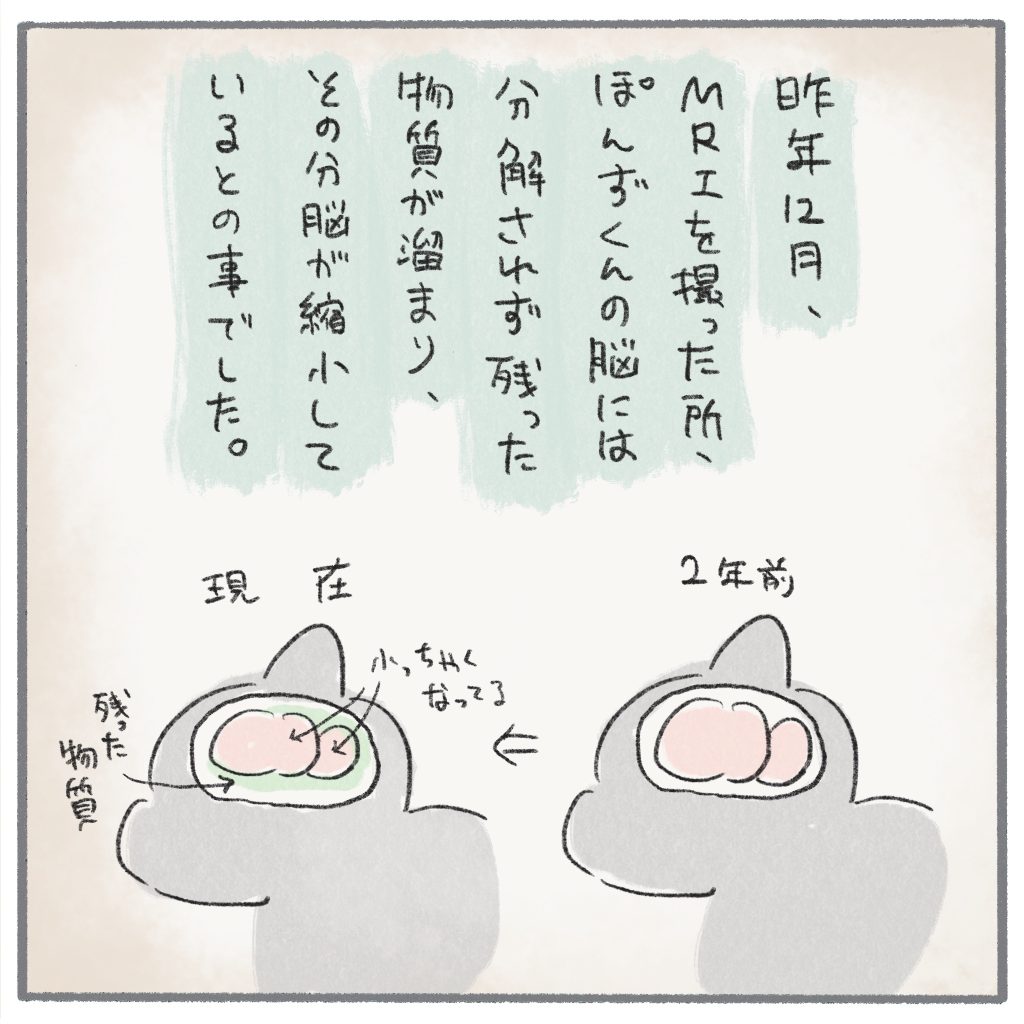 昨年12月、
MRIを撮った所、
ぽんずくんの脳には
分解されず残った
物質が溜まり、
その分脳が縮小して
いるとの事でした。
2年前
現在
小っちゃく
なってる
残った
物質